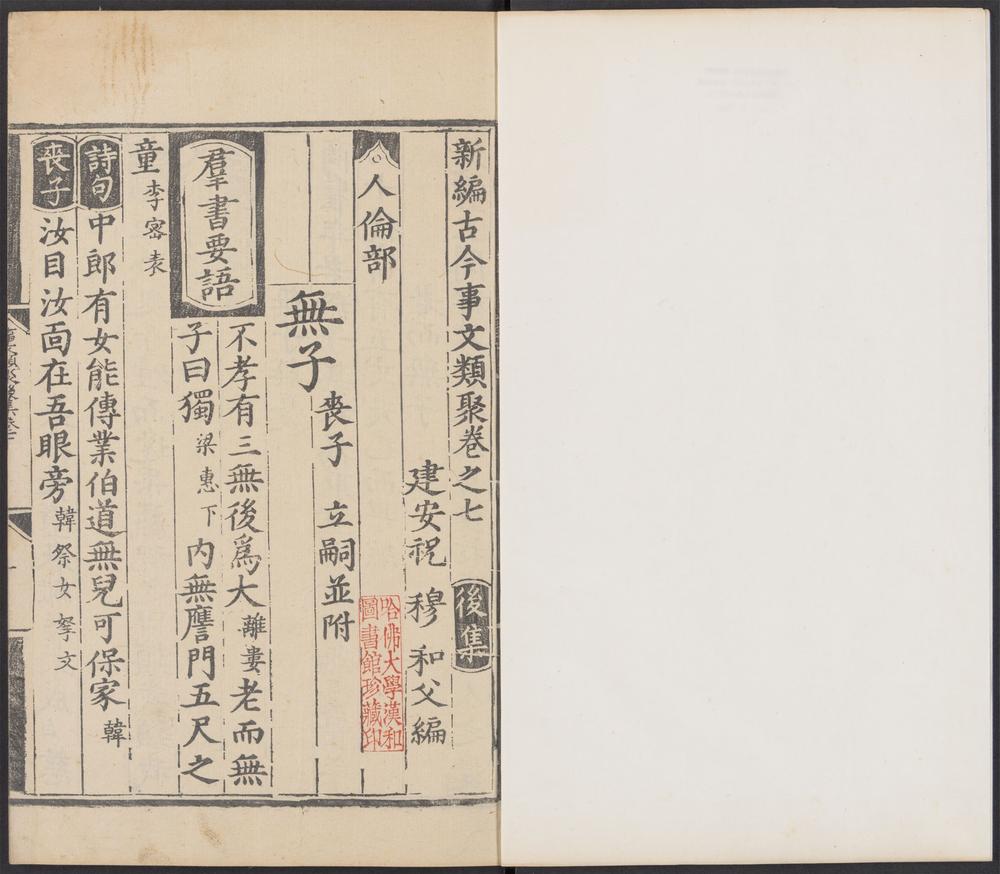 新編古今事文類聚卷之七 後集
建安祝 穆 和父編
人倫部
哈佛大學漢和
圖書館珍藏印
無子 喪子 立嗣並附
羣書要語 不孝有三無後爲大離婁老而無
子曰獨梁惠下 內無譍門五尺之
童李宻表
詩句 中郎有女能傳業伯道無兒可保家韓
喪子 汝目汝面在吾眼旁韓祭女挐文